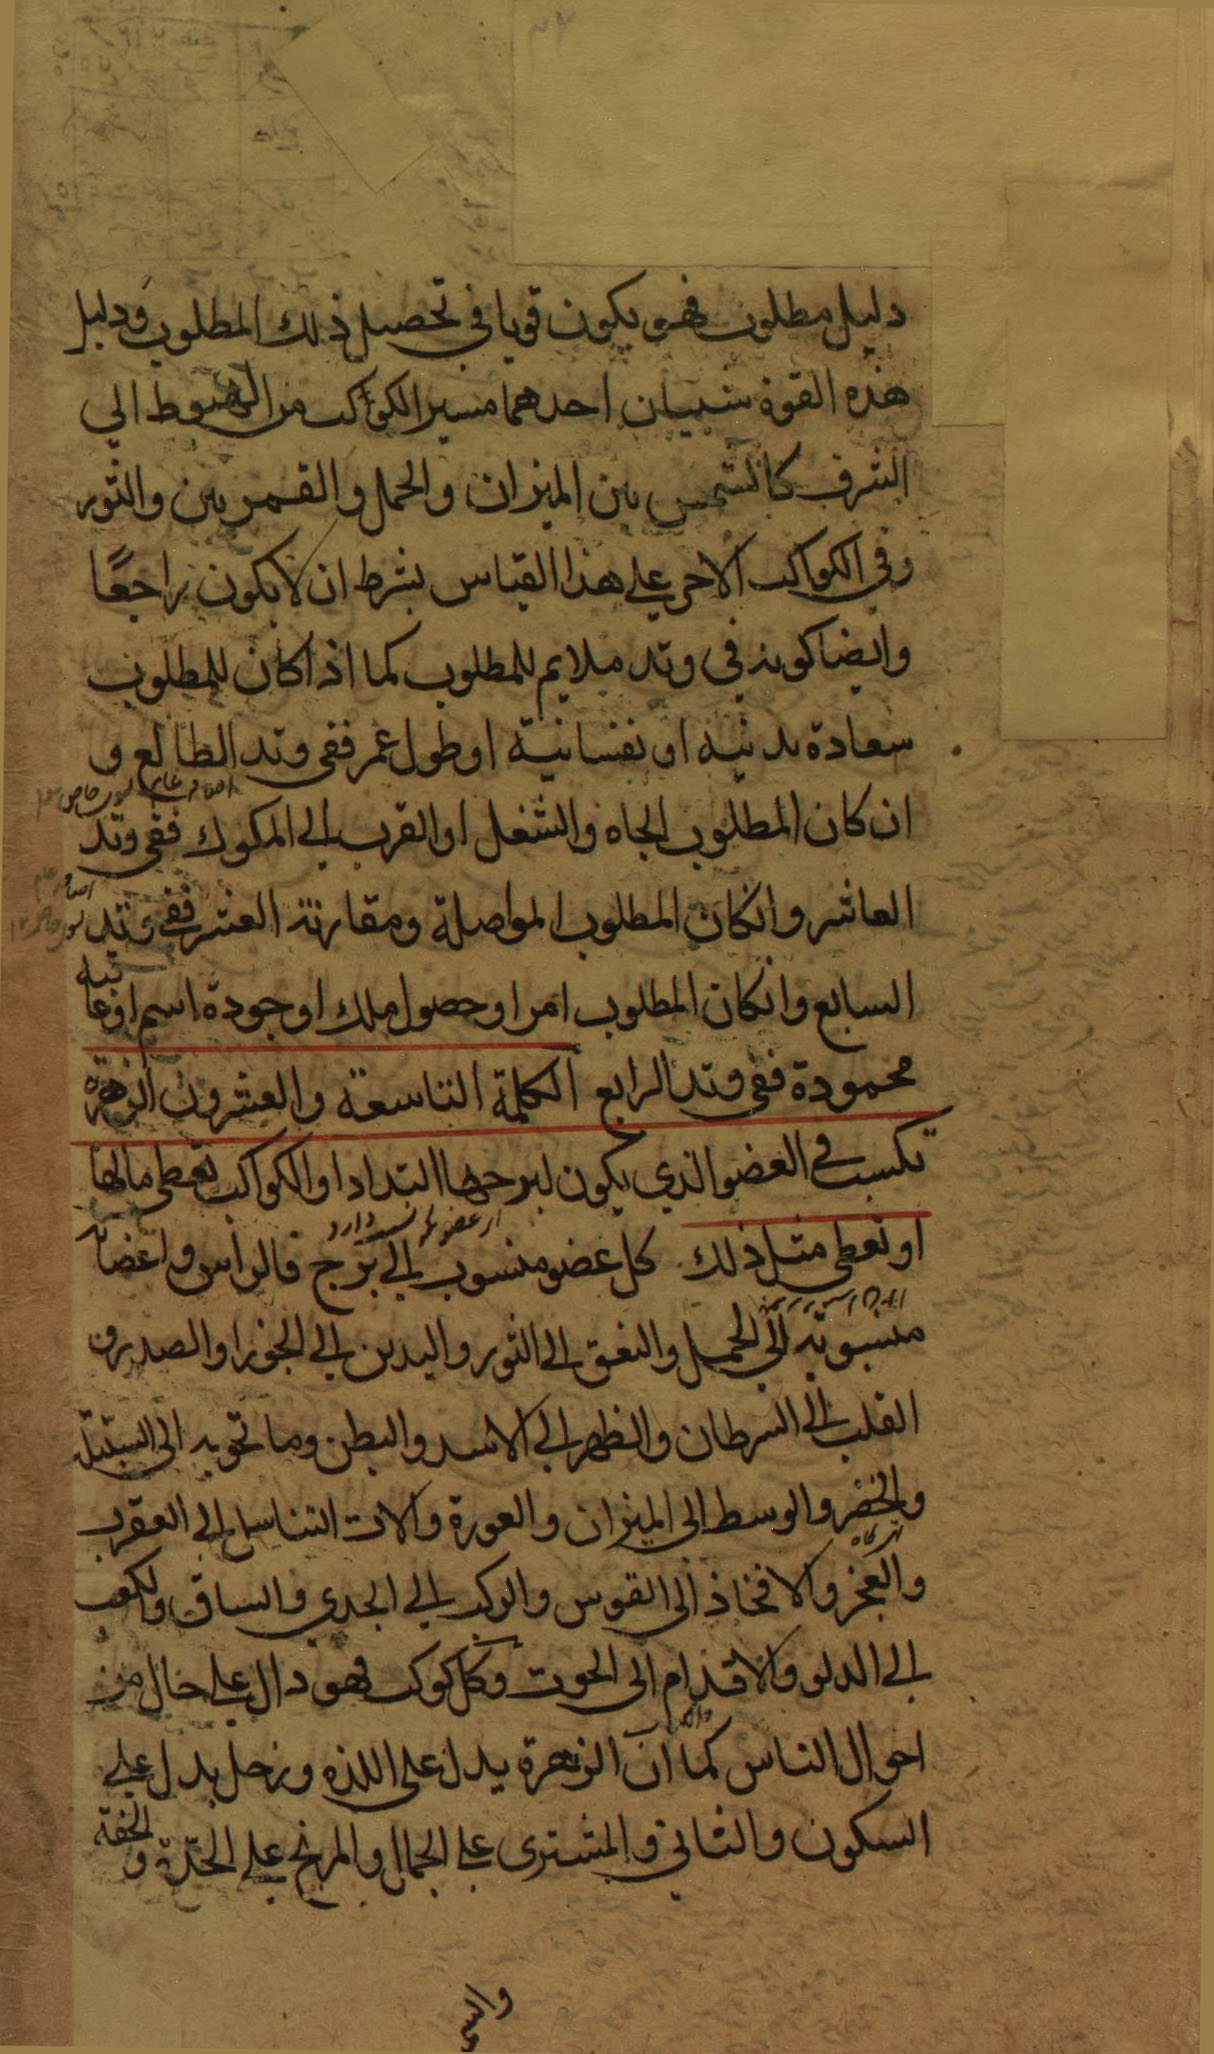 دليل مطلوب فهو يكون قويا في تحصيل ذلك المطلوب ودليل
هذه القوة شيئان احدهما مسير الكوكب من الهبوط الي
الشرف كالشمس بين الميزان والحمل والقمر بين والثور
وفي الكواكب الاخر علي هذا القياس بشرط ان لا يكون راجعًا
وايضا كونه في وتد ملايم للمطلوب كما اذا كان للمطلوب
سعادة بدنية او نفسانية او طول عمر ففي وتد الطالع و
ان كان المطلوب الجاه والشغل او القرب الي المكوك ففي وتد
العاشر وانكان المطلوب المواصلة ومقارنة العشر ففي وتد
السابع وانكان المطلوب امرا وحصول ملك او جودة اسم او عا
تبه
محمودة ففي وتد الرابع الكلمة التاسعة والعشرون الزهرة
تكسب في العضو الذي يكون لبرجها التداد او الكواكب تعطي مالها
او تعطي مثل ذلك كل عضو منسوب الي برج فالراس و اعضائه
منسوبة الي الحمل والعنق الي الثور واليدين الي الجوزا والصدر و
القلب الي السرطان والظهر الي الاسد والبطن وما تحويه الي السنبلة
والخصر والوسط الي الميزان والعورة والات التناسل الي العقرب
تهيگاه
والعجز والافخاذ الي القوس والركب الي الجدي والساق والكعب
الي الدلو والاقدام الي الحوت وكل كوكب فهو دال علي حال من
احوال الناس كما ان الزهرة يدل علي اللذه وزحل يدل علي
السكون والتاني والمشتري علي الجمال والمريخ علي الحدّة و
الخفة